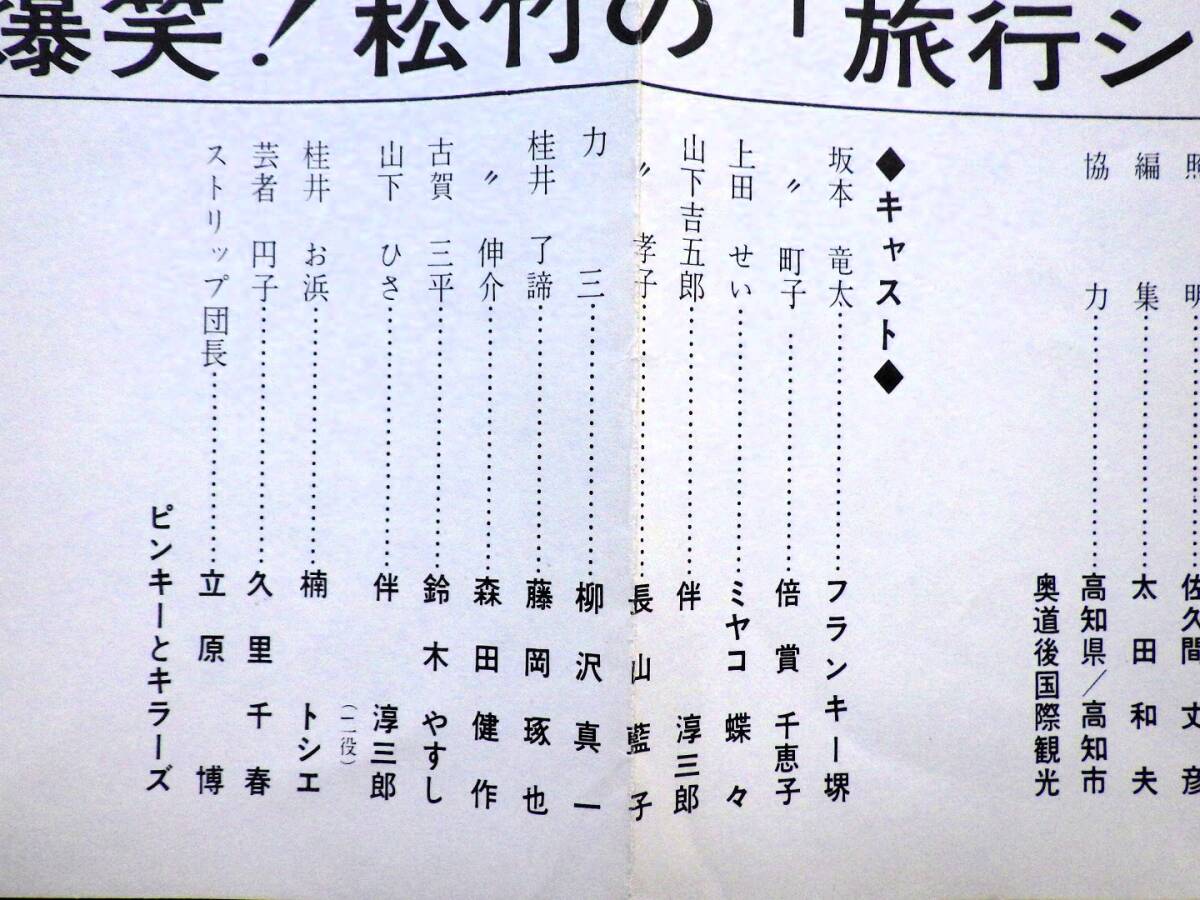 爆笑！松竹の「旅行シ
照 明……佐久間 丈彦
編 集……太田和夫
協 力……高知県／高知市
奥道後国際観光
◆キャスト◆
坂本 竜太……フランキー堺
〃 町子……倍賞 千恵子
上田 せい……ミヤコ 蝶々
山下吉五郎……伴 淳三郎
〃 孝子……長山藍子
力 三……柳沢真一
桂井 了諦……藤岡琢也
〃 伸介……森田健作
古賀 三平……鈴木やすし
山下 ひさ……伴 淳三郎
（二役）
桂井 お浜……楠 トシエ
芸者 円子……久里千春
ストリップ団長……立原 博
ピンキーとキラーズ